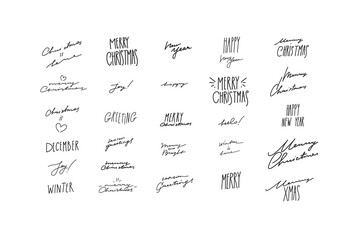 Christmas
=
love
MERRY
CHRISTMAS
new
year
HAPPY
new year
Merry
CHRISTMAS
merry
Christmas
Joy!
happy
MERRY
CHRISTMAS
Merry
Christmas
Christmas
=
GREETING
MERRY
Christmas
hello!
HAPPY
NEW YEAR
DECEMBER
season
greetings
Merry
Bright
Winter
Merry
Christmas
Joy!
merry
Christmas
WINTER
merry
Christmas
season
Greetings
MERRY
Merry
XMAS